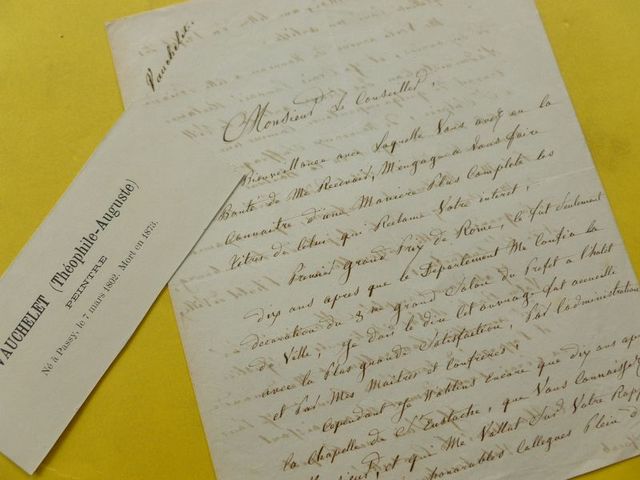 Vauchelet.
Monsieur Le Conseiller,
Bienveillance avec Laquelle Vous avez eu la
Bonté de Me Recevoir, M'engage a Vous faire
Connaitre d'une Maniere Plus Complete les
titres de Celui qui Reclame Votre interet,
Premier Grand Prix de Rome, Ce fut Seulement
dix ans apres que le Département Me Confia la
décoration du 3me grand Salon du Préfet a l'hotel
de Ville, Je dois le dire Cet ouvrage fut accueilli
avec la Plus grande Satisfaction, Par L'administration
et Par Mes Maitres et Confreres
Cependant J'attendis Encore dix ans
la Chapelle de St Eustache, que Vous Connaissez
Monsieur, et qui Me Vallut Sur Votre
honorables Collegues Plein
VAUCHELET (Théophile-Auguste)
PEINTRE
Né à Passy, le 7 mars 1802. Mort en 1873.